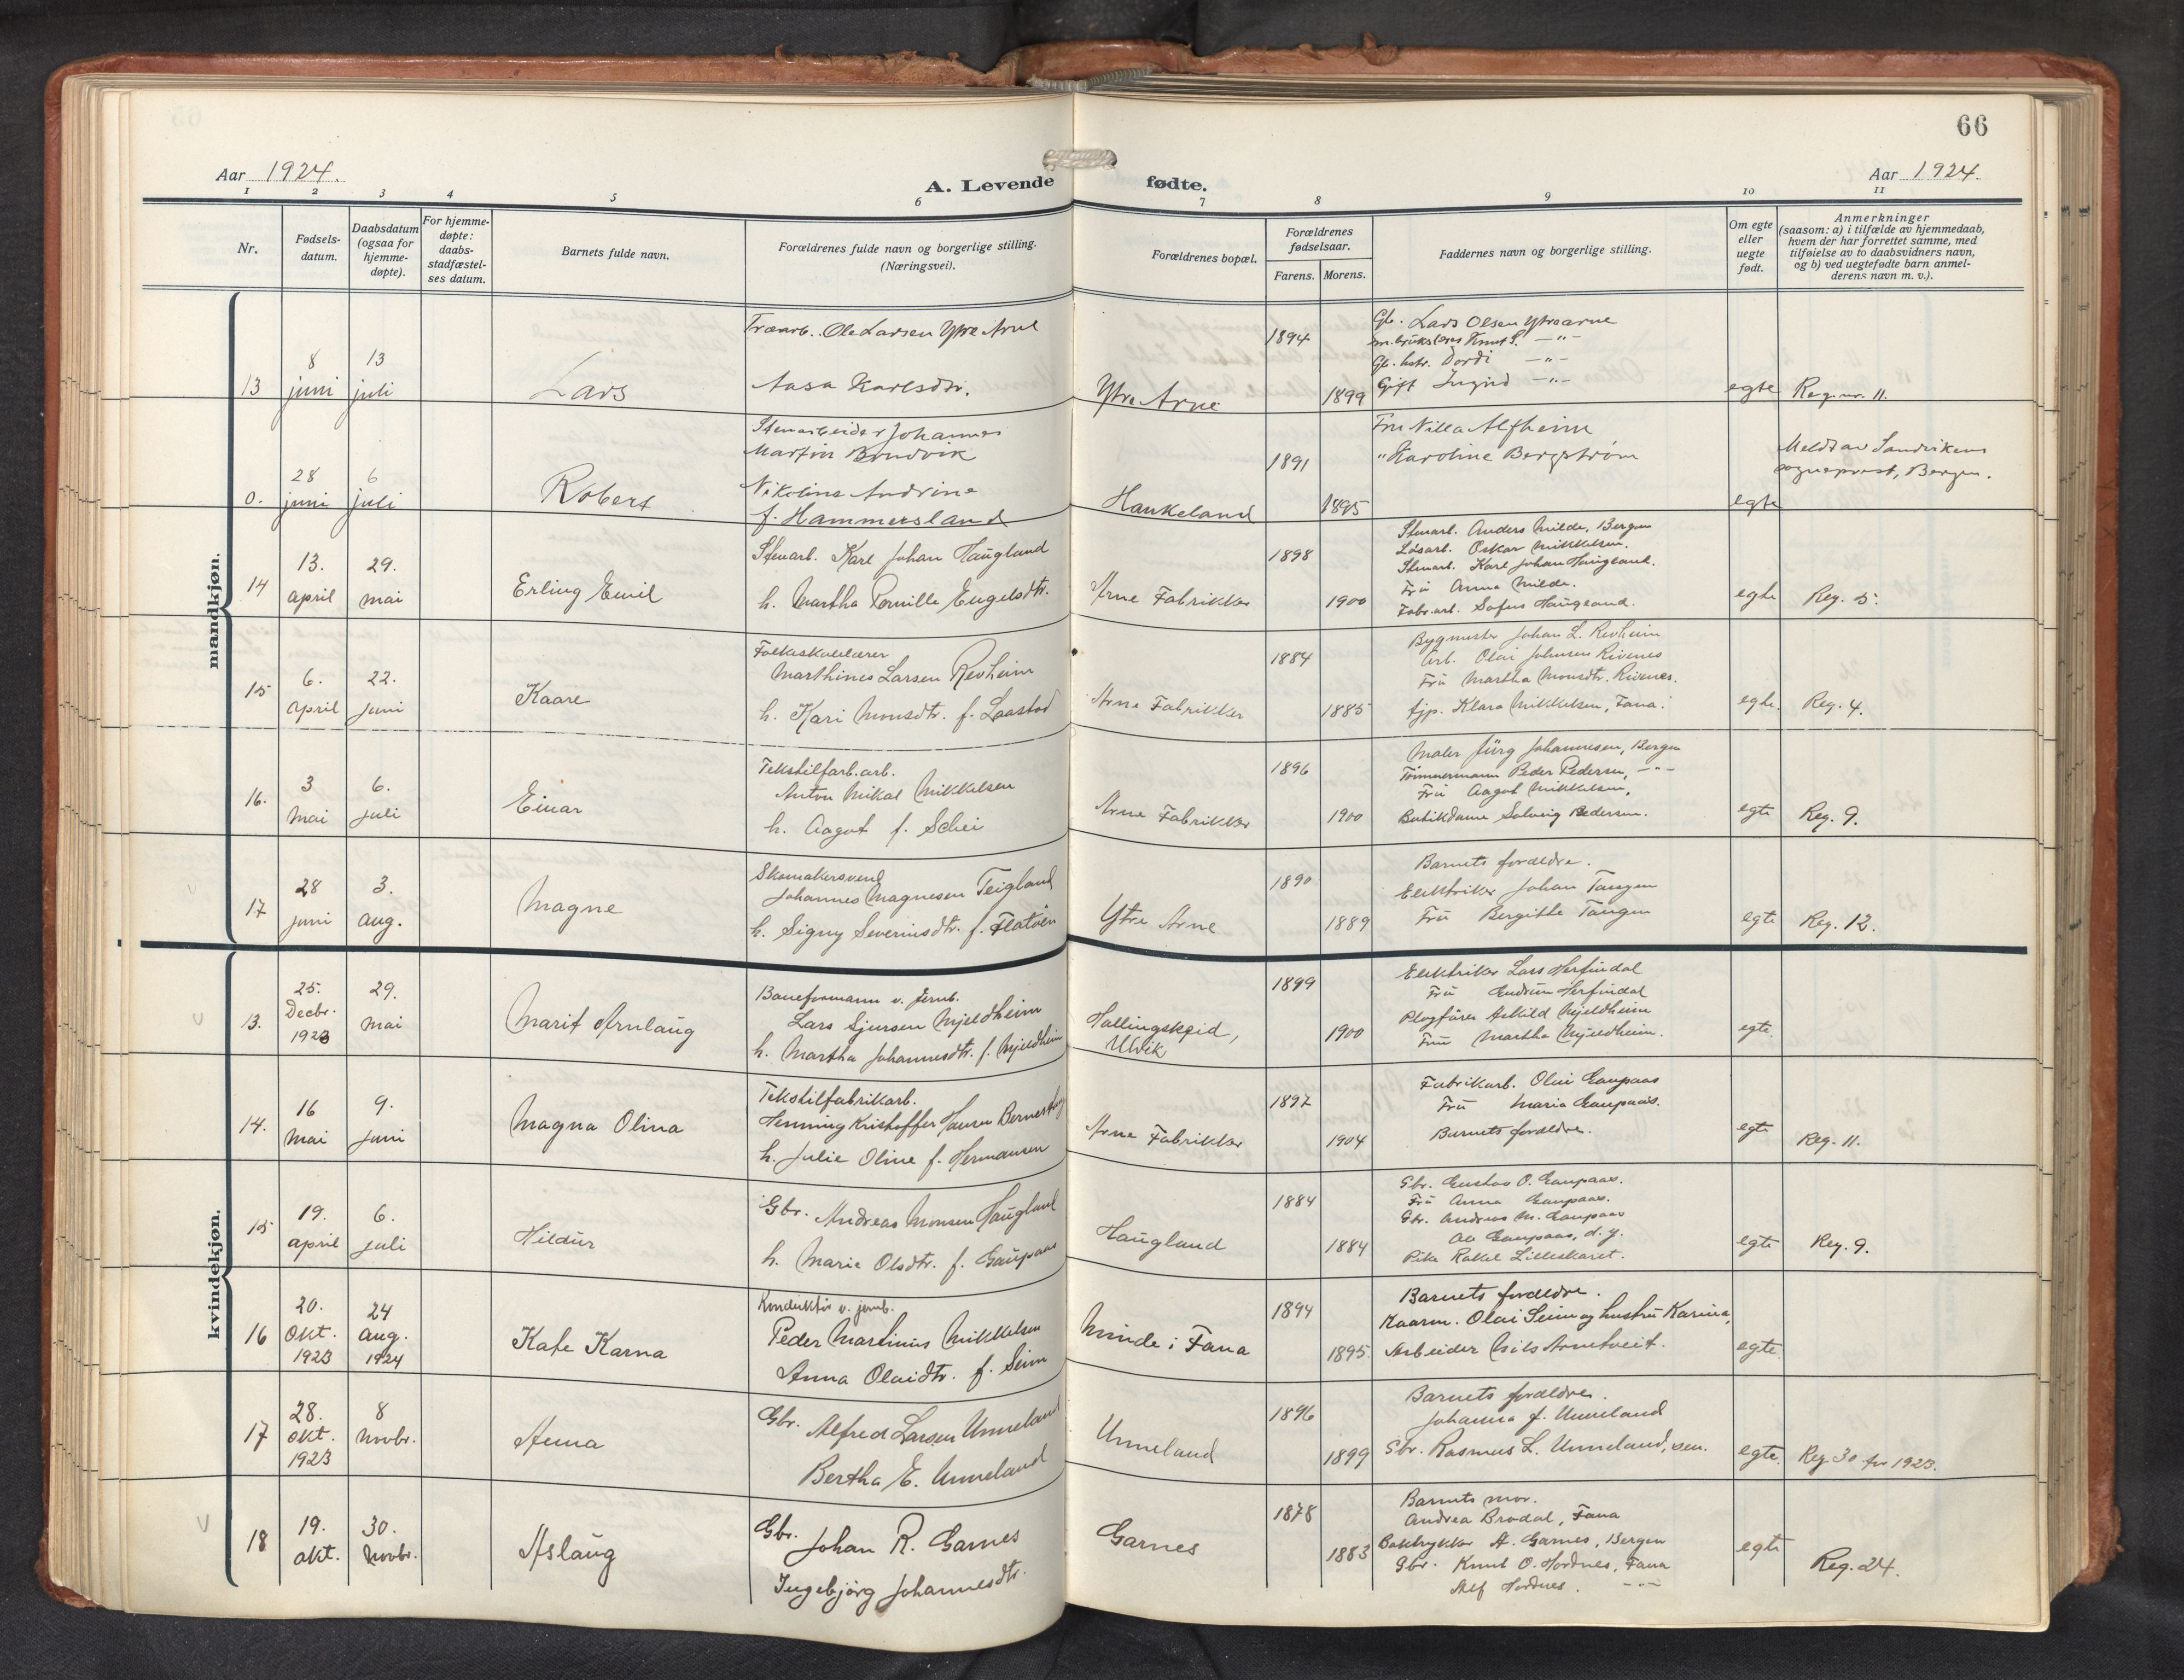 66
Aar 1924.
A. Levende fødte.
Aar 1924.
1 2 3 4 5 6 7 8 9 10 11
Nr.
Fødsels-
datum.
Daabsdatum
(ogsaa for
hjemme-
døpte).
For hjemme-
døpte:
daabs-
stadfæstel-
ses datum.
Barnets fulde navn.
Forældrenes fulde navn og borgerlige stilling.
(Næringsvei).
Forældrenes bopæl.
Forældrenes
fødselsaar.
Farens. Morens.
Faddernes navn og borgerlige stilling.
Om egte
eller
uegte
født.
Anmerkninger
(saasom: a) i tilfælde av hjemmedaab,
hvem der har forrettet samme, med
tilføielse av to daabsvidners navn,
og b) ved uegtefødte barn anmel-
derens navn m. v.).
mandkjøn.
13
8
juni
13
juli
Lars
Træarb. Ole Larsen Ytre Arne
Aasa Karlsdtr.
Ytre Arne
1894
1899
Gb. Lars Olsen Ytrearne
Knut L. —"—
Gb. hstr. Dordi —"—
Gift Ingrid —"—
egte
Reg. nr. 11.
0.
28
juni
6
juli
Robert
Stenarbeider Johannes
Martin Bondvik
Nikoline Andrine
f. Hammersland
Haukeland
1891
1895
Fru Nilla Alfheim
" Karoline Bergstrøm
egte
Meldt av Sandvikens
sogneprest, Bergen.
14
13.
april
29.
mai
Erling Emil
Stenarb. Karl Johan Haugland
h. Martha Pernille Engelsdtr.
Arne Fabrikker
1898
1900
Stenarb. Anders Milde, Bergen
Løsarb. Oskar Mikkelsen.
Stenarb. Karl Johan Haugland.
Fru Anna Milde.
Fabr.arb. Sofus Haugland.
egte
Reg. 5.
15
6.
april
22.
juni
Kaare
Folkeskolelærer
Marthines Larsen Revheim
h. Kari Monsdtr. f. Laastad
Arne Fabrikker
1884
1885
Bygmester Johan L. Revheim
Arb. Olai Johnsen Rivenes
Fru Martha Monsdtr. Rivenes.
tjp. Klara Mikkelsen, Fana.
egte.
Reg. 4.
16.
3
Mai
6.
juli
Einar
Tekstilfarb.arb.
Anton Mikal Mikkelsen
h. Aagot f. Schei
Arne Fabrikker
1896
1900
Maler Jürg Johannesen, Bergen
Tømmermann Peder Pedersen, —"—
Fru Aagot Mikkelsen,
Butikdame Solveig Pedersen.
egte
Reg. 9.
17
28
juni
3.
aug.
Magne
Skomakersvend
Johannes Magnesen Teigland
h. Signy Severinsdtr. f. Flatøen
Ytre Arne
1890
1889
Barnets forældre.
Elektriker Johan Tangen
Fru Bergitte Tangen
egte
Reg. 12.
kvindekjøn.
13.
25.
Decbr.
1923
29.
Mai
Marit Arnlaug
Baneformann v. Jernb.
Lars Sjursen Mjeldheim
h. Martha Johannesdtr. f. Mjeldheim
Hallingskeid,
Ulvik
1899
1900
Elektriker Lars Herfindal
Fru Gudrun Herfindal
Plogfører Askild Mjeldheim
Fru Martha Mjeldheim.
egte.
14.
16
Mai
9.
juni
Magna Olina
Tekstilfabrikarb.
Henning Kristoffer Hansen
h. Julie Oline f. Hermansen
Arne Fabrikker
1897
1904
Fabrikarb. Olai Gaupaas
Fru Maria Gaupaas.
Barnets forældre.
egte
Reg. 11.
15
19.
april
6.
juli
Hildur
Gbr. Andreas Monsen Haugland
h. Marie Olsdtr. f. Gaupaas
Haugland
1884
1884
Gbr. Gustav O. Gaupaas.
Fru Anna Gaupaas.
Gbr. Andreas M. Gaupaas
Ole Gaupaas, d.y.
Pike Rakel Lilleskaret.
egte
Reg. 9.
16
20.
Okt.
1923
24
Aug.
1924
Kate Karna
Konduktør v. jernb.
Peder Martinus Mikkelsen
Anna Olaidtr. f. Seim
Minde i Fana
1894
1895.
Barnets forældre.
Kaarm. Olai Seim og hustru Karina,
Arbeider Nils Arnetveit.
egte.
17
28.
Okt.
1923
8
Novbr.
Anna
Gbr. Alfred Larsen Unneland
Bertha E. Unneland
Unneland
1896
1899
Barnets forældre.
Johanna f. Unneland
Gbr. Rasmus L. Unneland, sen.
egte.
Reg. 30 for 1923.
18
19.
okt.
30.
Novbr.
Aslaug
Gbr. Johan R. Garnes
Ingebjørg Johannesdtr.
Garnes
1878
1883
Barnets mor.
Andrea Brodal, Fana
Boktrykker A. Garnes, Bergen
Gbr. Knut O. Hordnes, Fana
Alf Hordnes. —"—
egte
Reg. 24.